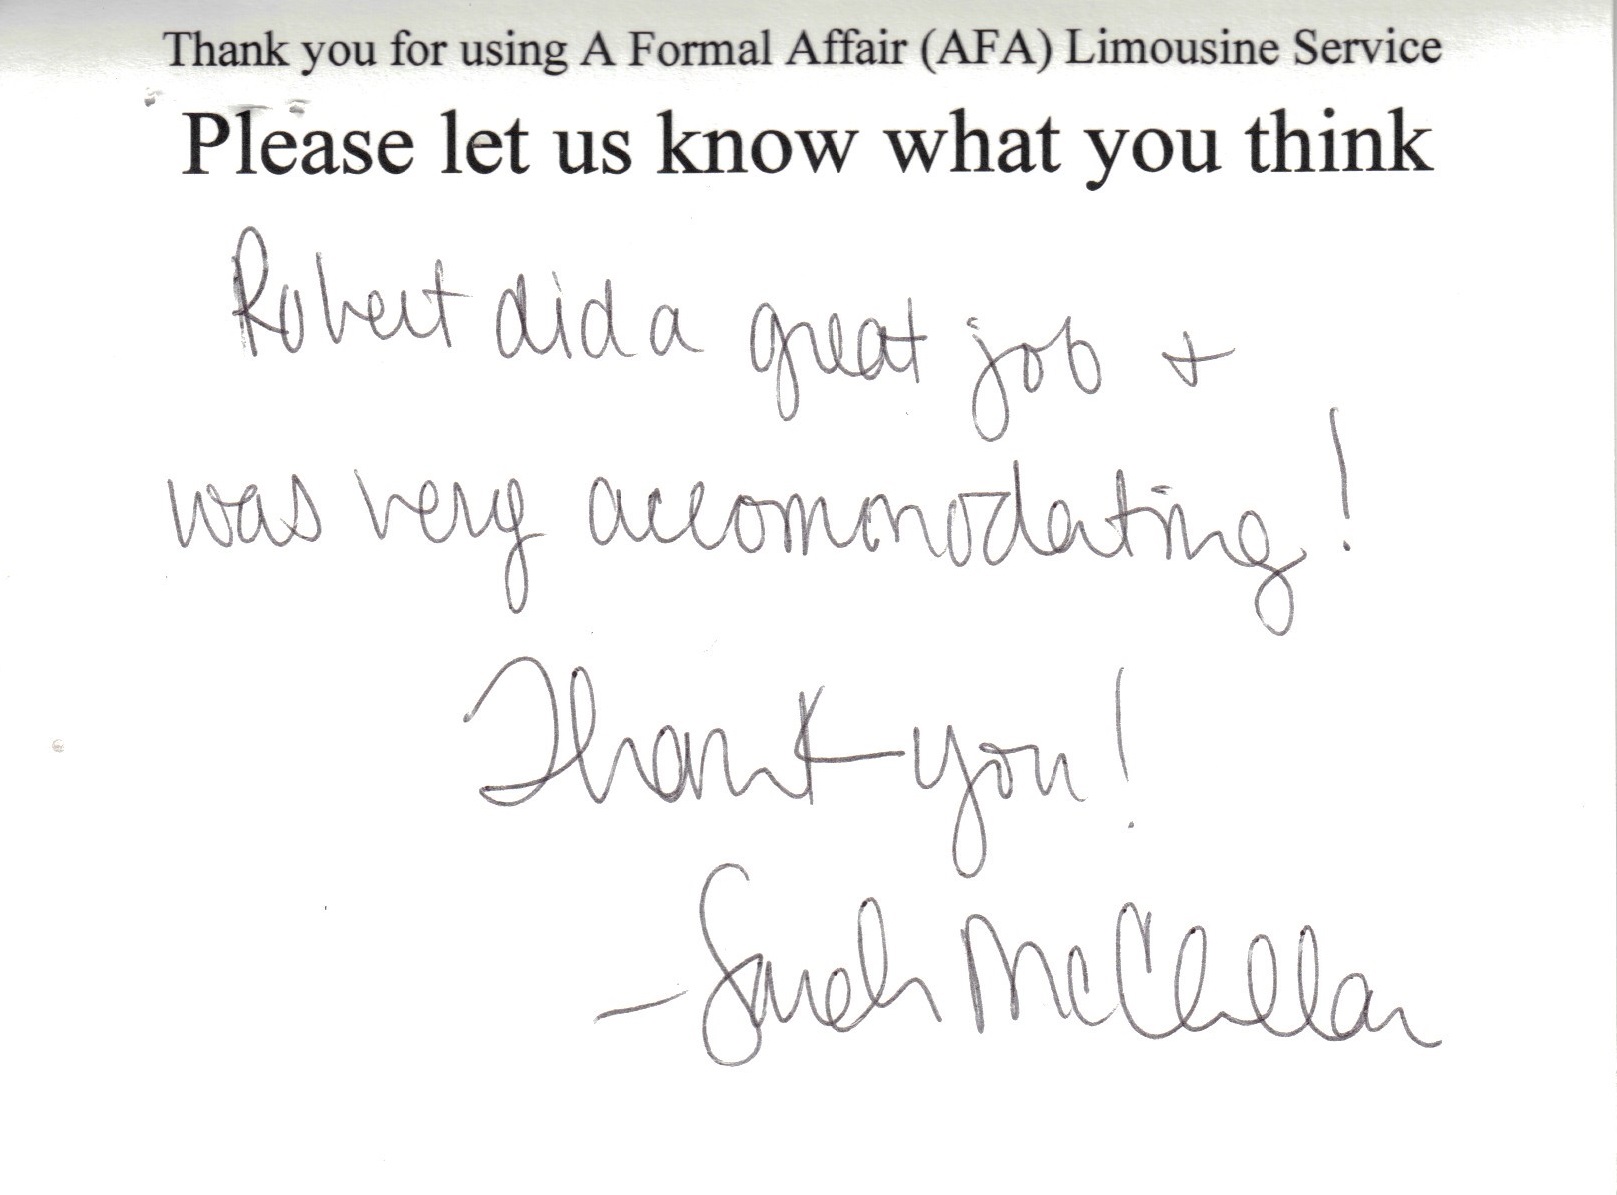 Thank you for using A Formal Affair (AFA) Limousine Service
Please let us know what you think
Robert did a great job +
was very accommodating!
Thank you!
- Sarah McClellan